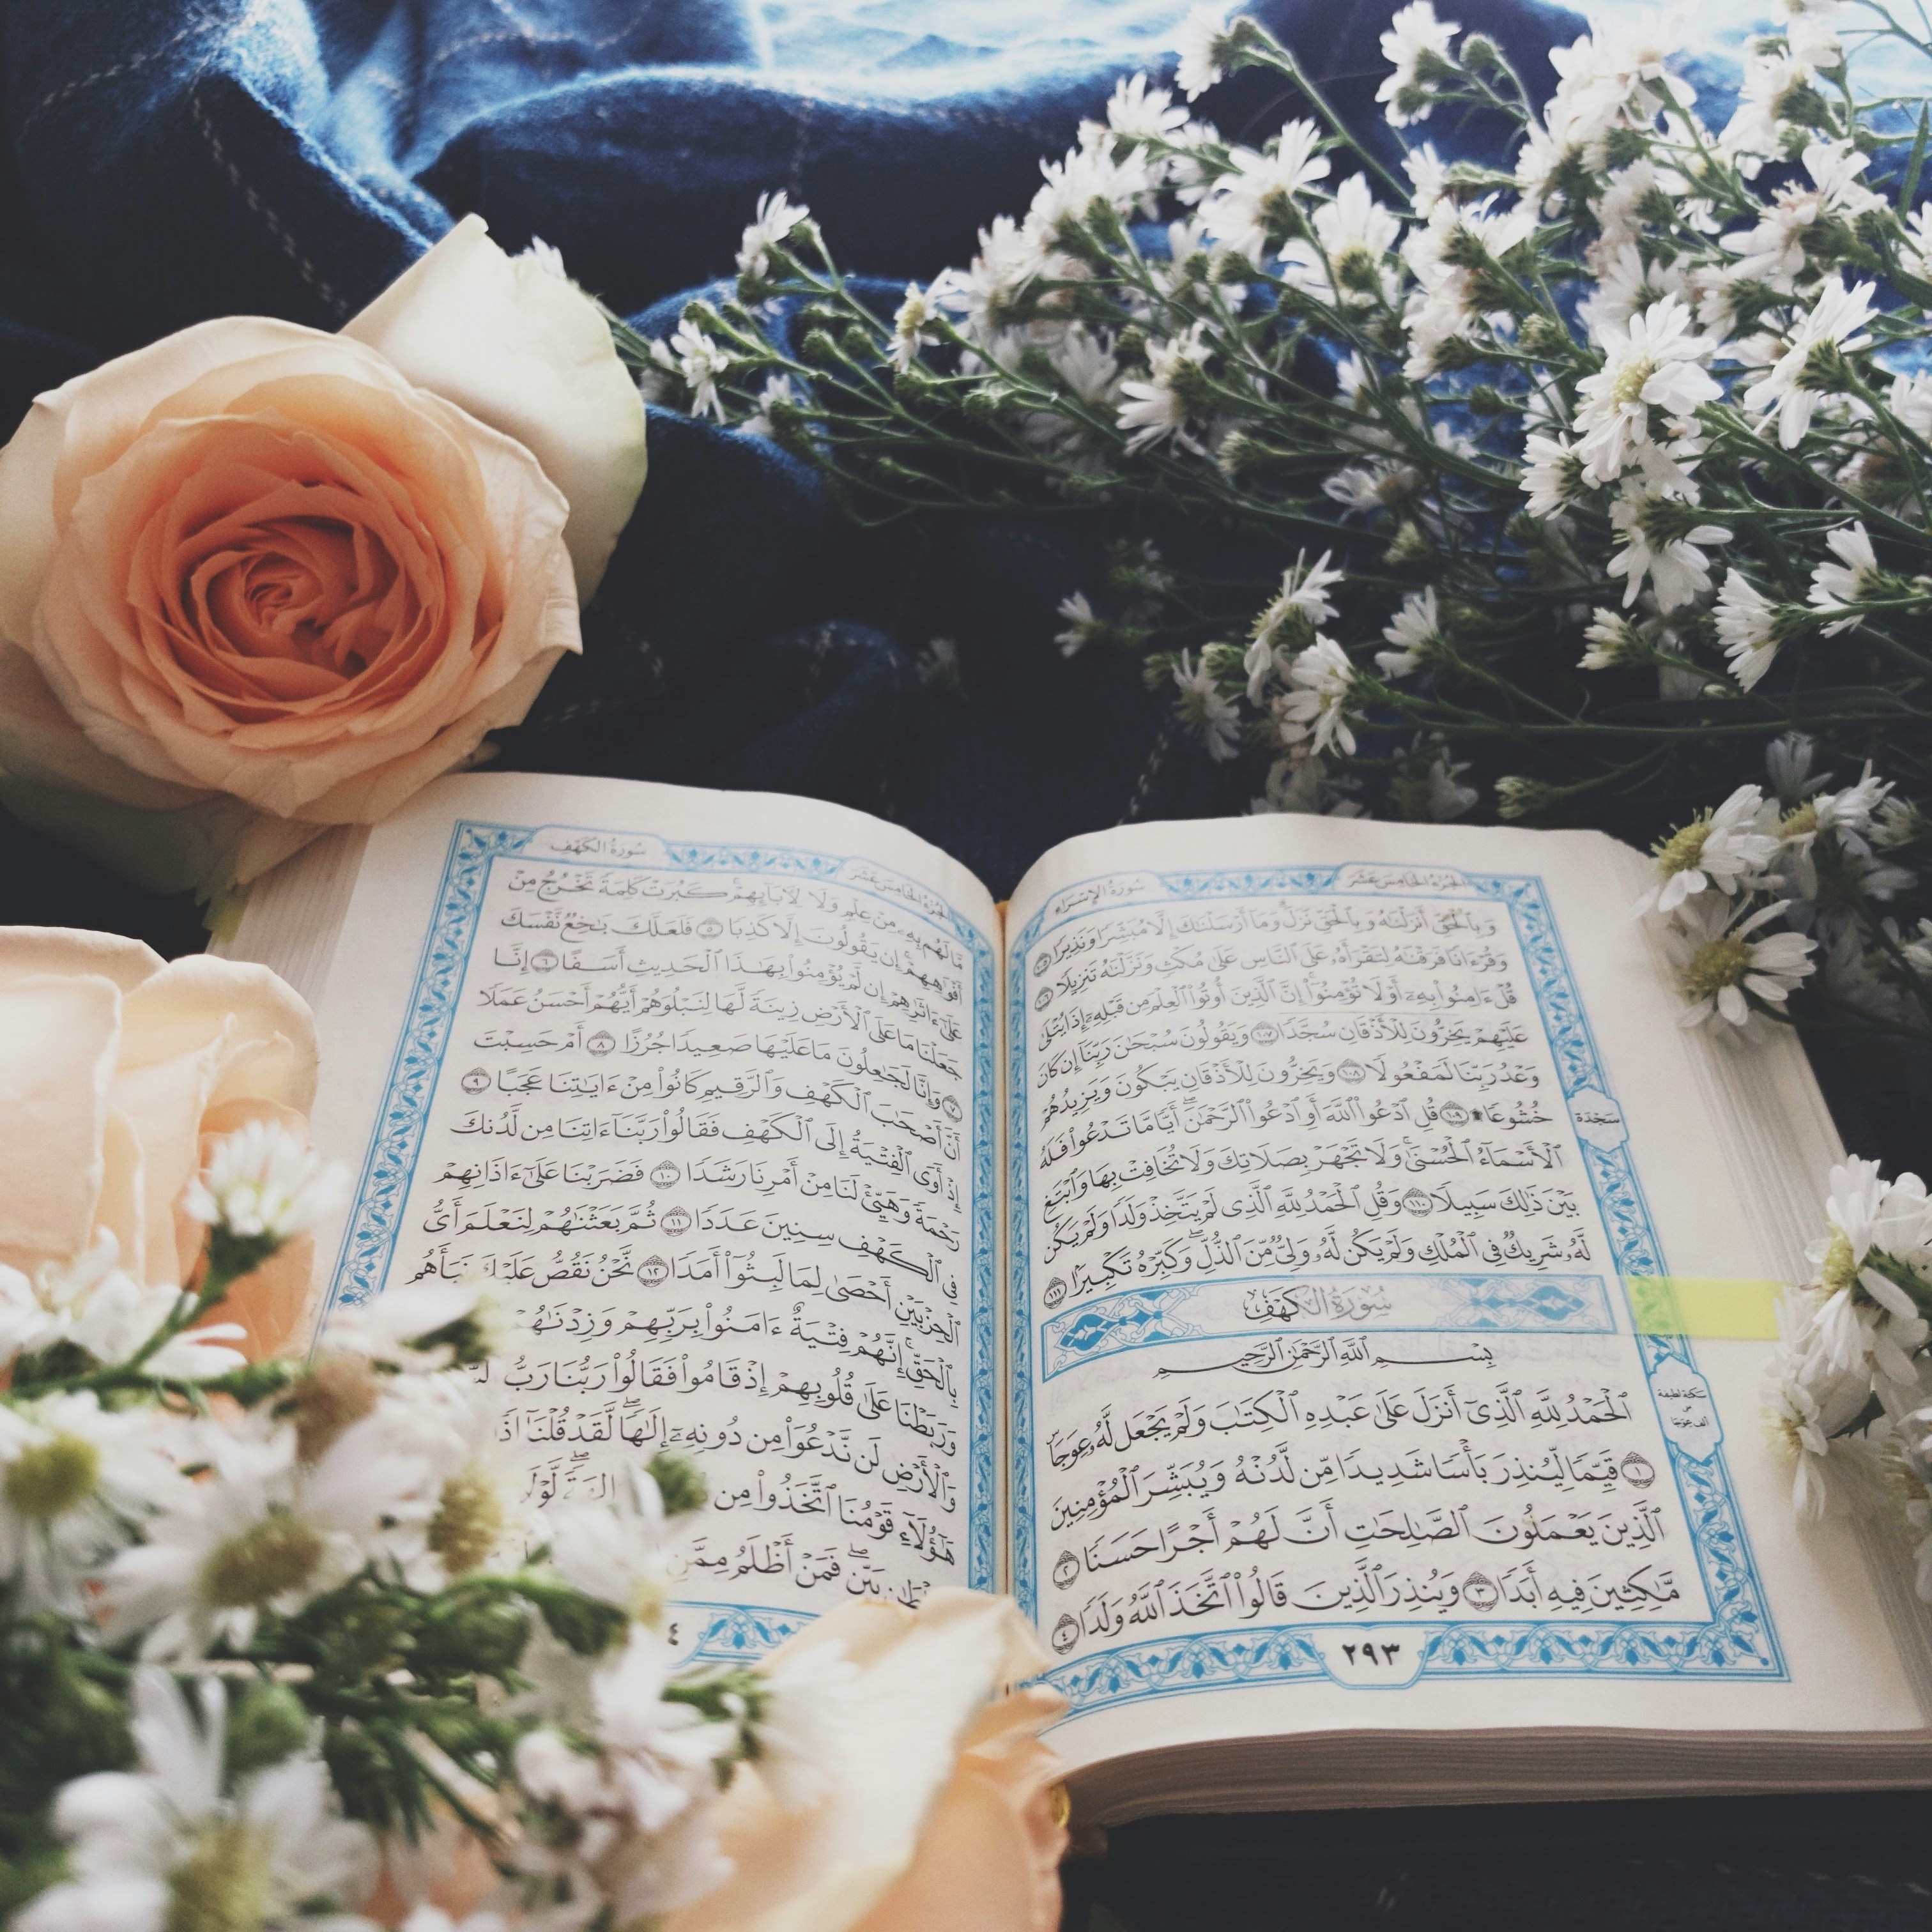 الجزء الخامس عشر
سورة الإسراء
وَبِالْحَقِّ أَنزَلْنَٰهُ وَبِالْحَقِّ نَزَلَ وَمَا أَرْسَلْنَٰكَ إِلَّا مُبَشِّرًا وَنَذِيرًا ١٠٥
وَقُرْءَانًا فَرَقْنَٰهُ لِتَقْرَأَهُۥ عَلَى النَّاسِ عَلَىٰ مُكْثٍ وَنَزَّلْنَٰهُ تَنزِيلًا ١٠٦
قُلْ ءَامِنُوا۟ بِهِۦٓ أَوْ لَا تُؤْمِنُوٓا۟ إِنَّ الَّذِينَ أُوتُوا۟ الْعِلْمَ مِن قَبْلِهِۦٓ إِذَا يُتْلَىٰ
عَلَيْهِمْ يَخِرُّونَ لِلْأَذْقَانِ سُجَّدًا ١٠٧ وَيَقُولُونَ سُبْحَٰنَ رَبِّنَآ إِن كَانَ
وَعْدُ رَبِّنَا لَمَفْعُولًا ١٠٨ وَيَخِرُّونَ لِلْأَذْقَانِ يَبْكُونَ وَيَزِيدُهُمْ
خُشُوعًا ۩ ١٠٩ قُلِ ادْعُوا۟ اللَّهَ أَوِ ادْعُوا۟ الرَّحْمَٰنَ ۖ أَيًّا مَّا تَدْعُوا۟ فَلَهُ
سَجْدَة
الْأَسْمَآءُ الْحُسْنَىٰ ۚ وَلَا تَجْهَرْ بِصَلَاتِكَ وَلَا تُخَافِتْ بِهَا وَابْتَغِ
بَيْنَ ذَٰلِكَ سَبِيلًا ١١٠ وَقُلِ الْحَمْدُ لِلَّهِ الَّذِى لَمْ يَتَّخِذْ وَلَدًا وَلَمْ يَكُن
لَّهُۥ شَرِيكٌ فِى الْمُلْكِ وَلَمْ يَكُن لَّهُۥ وَلِىٌّ مِّنَ الذُّلِّ ۖ وَكَبِّرْهُ تَكْبِيرًۢا ١١١
سُورَةُ الكَهْفِ
بِسْمِ اللَّهِ الرَّحْمَٰنِ الرَّحِيمِ
الْحَمْدُ لِلَّهِ الَّذِىٓ أَنزَلَ عَلَىٰ عَبْدِهِ الْكِتَٰبَ وَلَمْ يَجْعَل لَّهُۥ عِوَجَاۜ
سكتة لطيفة
على
ألف عوجا
١ قَيِّمًا لِّيُنذِرَ بَأْسًا شَدِيدًا مِّن لَّدُنْهُ وَيُبَشِّرَ الْمُؤْمِنِينَ
الَّذِينَ يَعْمَلُونَ الصَّٰلِحَٰتِ أَنَّ لَهُمْ أَجْرًا حَسَنًا ٢
مَّٰكِثِينَ فِيهِ أَبَدًا ٣ وَيُنذِرَ الَّذِينَ قَالُوا۟ اتَّخَذَ اللَّهُ وَلَدًا ٤
٢٩٣
الجزء الخامس عشر
سورة الكهف
مَّا لَهُم بِهِۦ مِنْ عِلْمٍ وَلَا لِءَابَآئِهِمْ ۚ كَبُرَتْ كَلِمَةً تَخْرُجُ مِنْ
أَفْوَٰهِهِمْ ۚ إِن يَقُولُونَ إِلَّا كَذِبًا ٥ فَلَعَلَّكَ بَٰخِعٌ نَّفْسَكَ
عَلَىٰٓ ءَاثَٰرِهِمْ إِن لَّمْ يُؤْمِنُوا۟ بِهَٰذَا الْحَدِيثِ أَسَفًا ٦ إِنَّا
جَعَلْنَا مَا عَلَى الْأَرْضِ زِينَةً لَّهَا لِنَبْلُوَهُمْ أَيُّهُمْ أَحْسَنُ عَمَلًا
٧ وَإِنَّا لَجَٰعِلُونَ مَا عَلَيْهَا صَعِيدًا جُرُزًا ٨ أَمْ حَسِبْتَ
أَنَّ أَصْحَٰبَ الْكَهْفِ وَالرَّقِيمِ كَانُوا۟ مِنْ ءَايَٰتِنَا عَجَبًا ٩
إِذْ أَوَى الْفِتْيَةُ إِلَى الْكَهْفِ فَقَالُوا۟ رَبَّنَآ ءَاتِنَا مِن لَّدُنكَ
رَحْمَةً وَهَيِّئْ لَنَا مِنْ أَمْرِنَا رَشَدًا ١٠ فَضَرَبْنَا عَلَىٰٓ ءَاذَانِهِمْ
فِى الْكَهْفِ سِنِينَ عَدَدًا ١١ ثُمَّ بَعَثْنَٰهُمْ لِنَعْلَمَ أَىُّ
الْحِزْبَيْنِ أَحْصَىٰ لِمَا لَبِثُوٓا۟ أَمَدًا ١٢ نَّحْنُ نَقُصُّ عَلَيْكَ نَبَأَهُم
بِالْحَقِّ ۚ إِنَّهُمْ فِتْيَةٌ ءَامَنُوا۟ بِرَبِّهِمْ وَزِدْنَٰهُمْ
وَرَبَطْنَا عَلَىٰ قُلُوبِهِمْ إِذْ قَامُوا۟ فَقَالُوا۟ رَبُّنَا رَبُّ
وَالْأَرْضِ لَن نَّدْعُوَا۟ مِن دُونِهِۦٓ إِلَٰهًا ۖ لَّقَدْ قُلْنَآ
هَٰٓؤُلَآءِ قَوْمُنَا اتَّخَذُوا۟ مِن
بَيِّنٍ ۖ فَمَنْ أَظْلَمُ مِمَّنِ